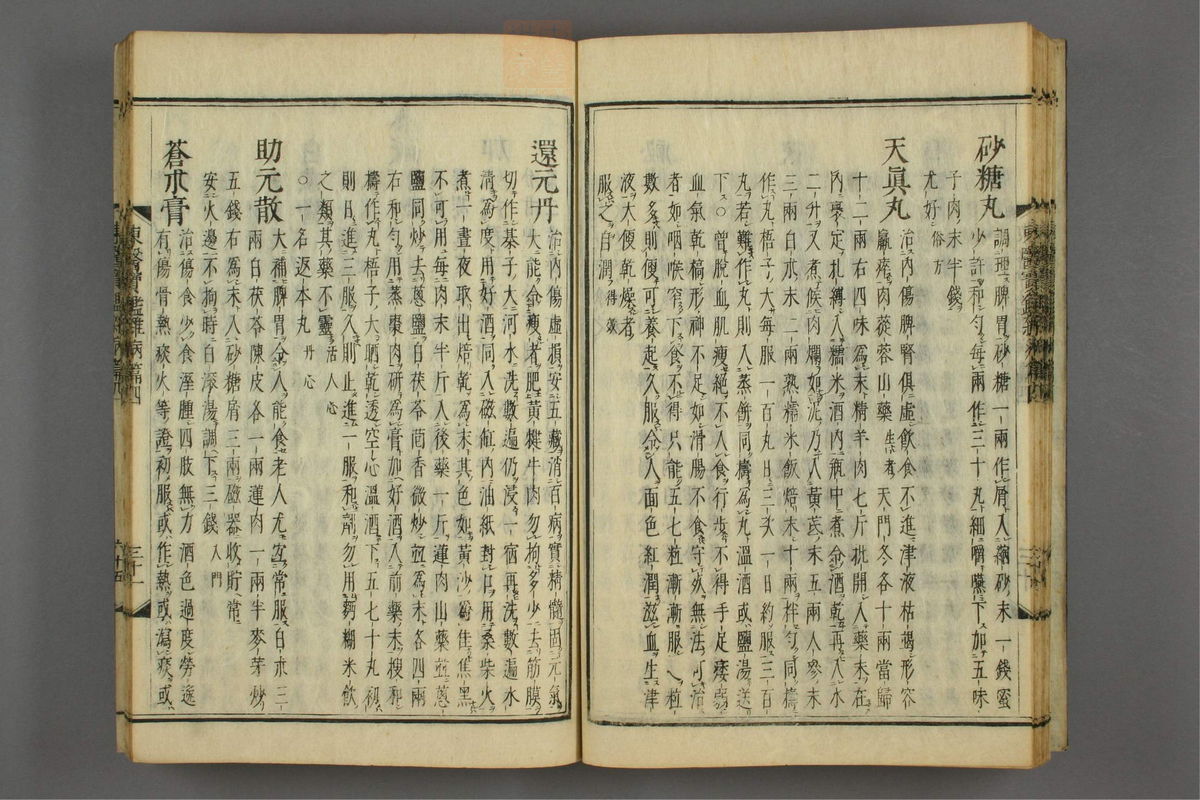 砂糖丸
調理脾胃砂糖一兩作屑入縮砂末一錢蜜
少許和勻每一兩作三十丸細嚼嚥下加五味
子肉末半錢
尤好俗方
天眞丸
治內傷脾腎俱虛飮食不進津液枯竭形容
羸瘁肉蓯蓉山藥生者天門冬各十兩當歸
十二兩右四味爲末精羊肉七斤批開入藥末在
內裹定札縛入糯米酒內瓶中煮令酒乾再入水
二升又煮候肉爛如泥乃入黃芪末五兩人參末
三兩白朮末二兩熟糯米飯焙末十兩拌勻同擣
作丸梧子大每服一百丸日三次一日約服三百
丸若難作丸則入蒸餠同擣爲丸溫酒或鹽湯送
下○曾脫血肌瘦絶不入食行步不得手足痿弱
血氣乾槁形神不足如滑腸不食守死無法可治
者如咽喉窄下食不得只能五七粒漸漸服八粒
數多則便可養起久服令人面色紅潤滋血生津
液大便乾燥者
服之自潤得效
還元丹
治內傷虛損安五藏消百病實精髓固元氣
大能令瘦者肥黃犍牛肉勿拘多少去筋膜
切作棊子大河水洗數遍仍浸一宿再洗數遍水
淸爲度用好酒同入磁缸內油紙封口用桑柴火
煮一晝夜取出焙乾爲末其色如黃沙爲佳焦黑
不可用每末半斤入後藥一斤蓮肉山藥並蔥
鹽同炒去蔥鹽白茯苓茴香微炒並爲末各四兩
右和勻用蒸棗肉硏爲膏加好酒入前藥末搜和
擣作丸梧子大晒乾透空心溫酒下五七十丸初
則日進三服久則止進一服和劑勿用麪糊米飮
之類其藥不靈活人心
○一名返本丸丹心
助元散
大補脾胃令人能食老人尤宜常服白朮三
兩白茯苓陳皮各一兩蓮肉一兩半麥芽炒
五錢右爲末入砂糖屑三兩磁器收貯常
安火邊不拘時白滾湯調下三錢入門
蒼朮膏
治傷食少食溼腫四肢無力酒色過度勞逸
有傷骨熱痰火等證初服或作熱或瀉痰或
東醫寶鑑雜病篇四
三十一